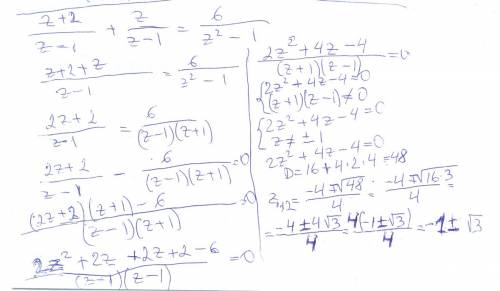 (z+2)/(z-1) + z/(z-1) = 6/(z²-1)
(z+2+z)/(z-1) = 6/(z²-1)
(2z+2)/(z-1) = 6/((z-1)(z+1))
(2z+2)/(z-1) - 6/((z-1)(z+1)) = 0
((2z+2)(z+1)-6)/((z-1)(z+1)) = 0
(2z²+2z+2z+2-6)/((z-1)(z-1)) = 0
(2z²+4z-4)/((z+1)(z-1)) = 0
{2z²+4z-4=0
{(z+1)(z-1)≠0
{2z²+4z-4=0
{z≠±1
2z²+4z-4=0
D=16+4·2·4=48
z₁,₂ = (-4∓√48)/4 = (-4∓√16·3)/4 =
= (-4±4√3)/4 = 4(-1±√3)/4 = -1±√3